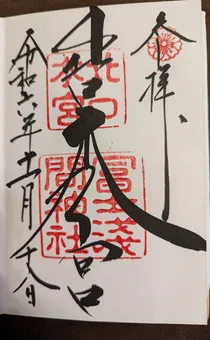 奉拝
北口本宮
北口
本宮
冨士淺
間神社
令和六年十一月十八日